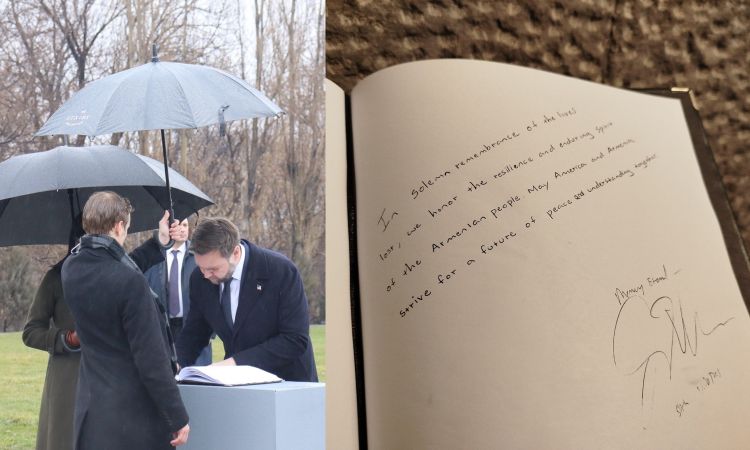 In solemn remembrance of the lives
lost, we honor the resilience and enduring spirit
of the Armenian people. May America and Armenia
strive for a future of peace and understanding together
Memory Eternal –